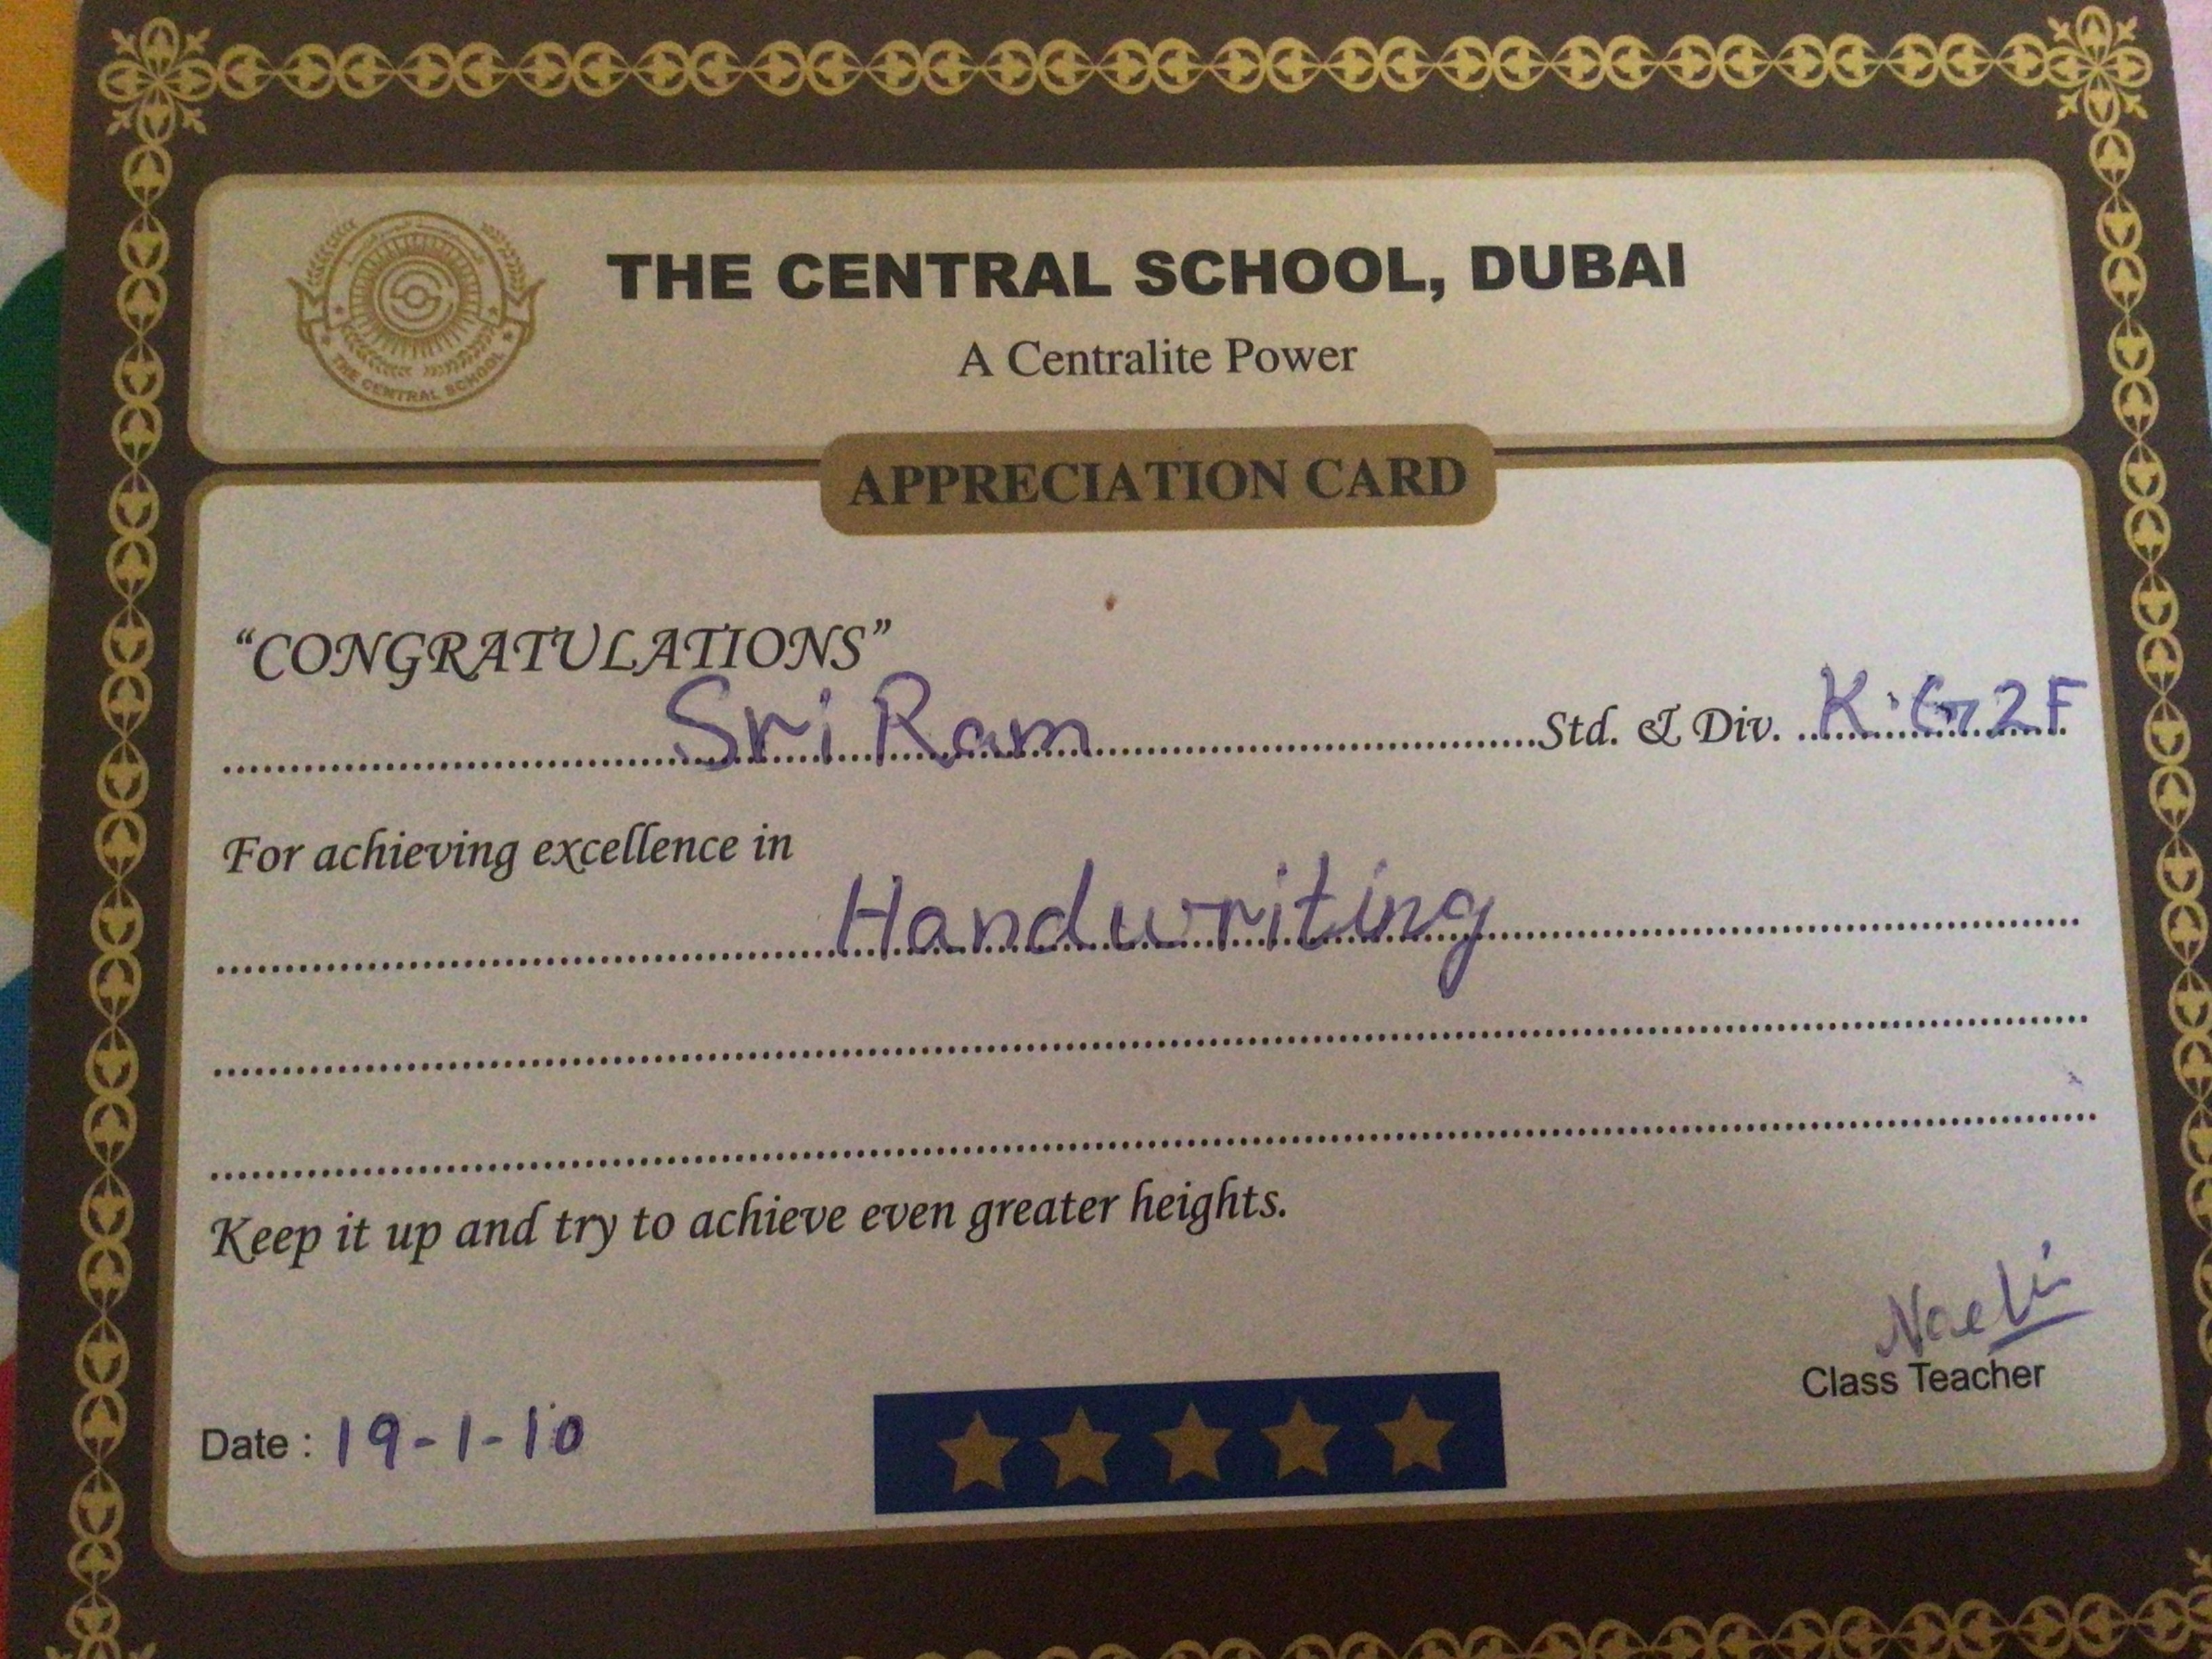 THE CENTRAL SCHOOL, DUBAI
THE CENTRAL SCHOOL
A Centralite Power
APPRECIATION CARD
“CONGRATULATIONS”
Sri Ram Std. & Div. K.G 2F
For achieving excellence in
Handwriting
Keep it up and try to achieve even greater heights.
Class Teacher
Date : 19-1-10